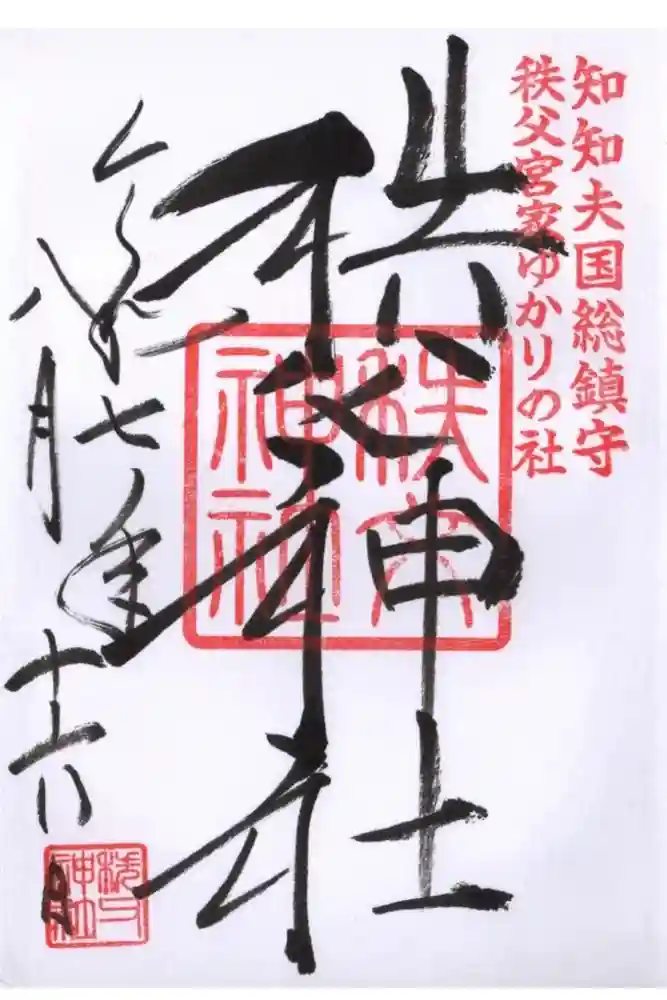 知知夫国総鎮守
秩父宮家ゆかりの社
秩父神社
秩父神社
令和七年
八月十六日
秩父神社